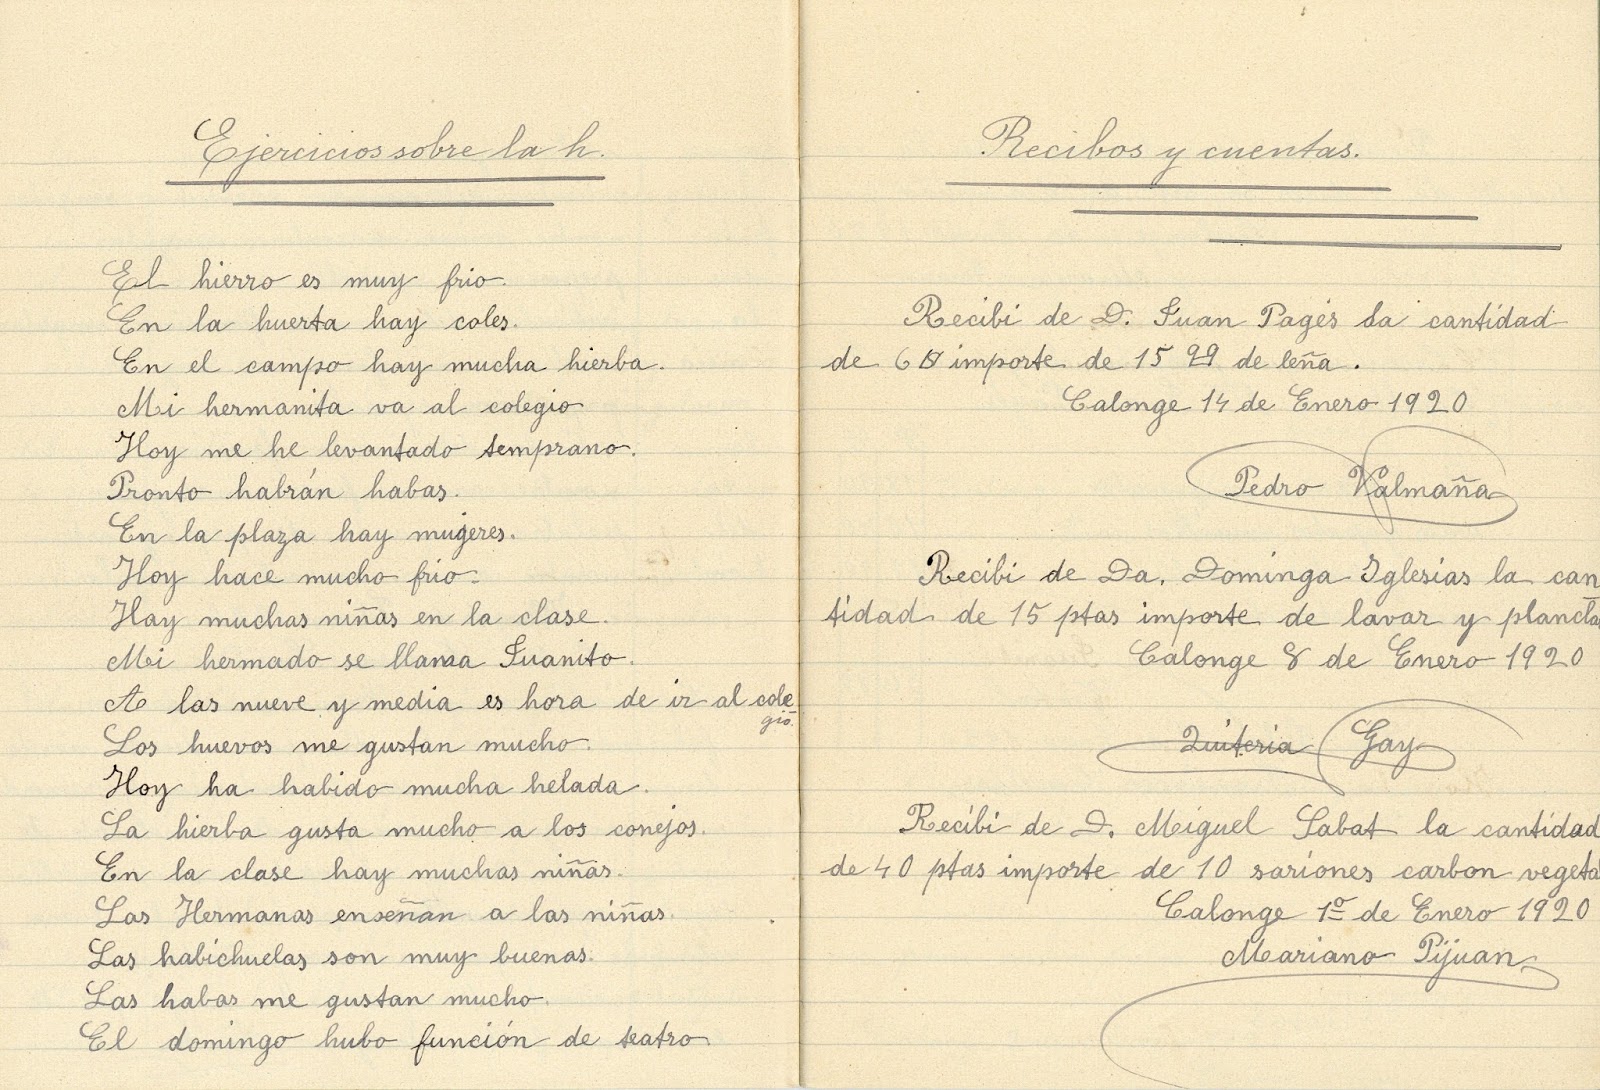 Ejercicios sobre la h.
El hierro es muy frio.
En la huerta hay coles.
En el campo hay mucha hierba.
Mi hermanita va al colegio
Hoy me he levantado temprano.
Pronto habrán habas.
En la plaza hay mujeres.
Hoy hace mucho frio.
Hay muchas niñas en la clase.
Mi hermado se llama Juanito.
A las nueve y media es hora de ir al cole
gio.
Los huevos me gustan mucho.
Hoy ha habido mucha helada.
La hierba gusta mucho a los conejos.
En la clase hay muchas niñas.
Las Hermanas enseñan a las niñas.
Las habichuelas son muy buenas.
Las habas me gustan mucho.
El domingo hubo función de teatro
Recibos y cuentas.
Recibi de D. Juan Pagés la cantidad
de 6 importe de 15 qq de leña.
Calonge 14 de Enero 1920
Pedro Valmaña
Recibi de Da. Dominga Iglesias la can
tidad de 15 ptas importe de lavar y plancha
Calonge 8 de Enero 1920
Quiteria Gay
Recibi de D. Miguel Sabat la cantidad
de 40 ptas importe de 10 sariones carbon vegeta
Calonge 1º de Enero 1920
Mariano Pijuan